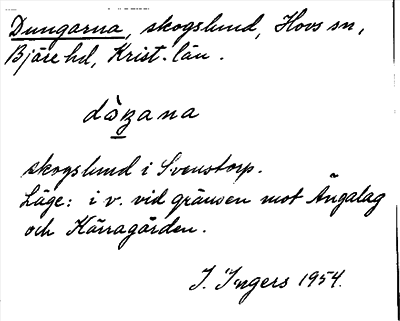 Dungarna, skogslund, Hovs sn,
Bjäre hd, Krist. län.
skogslund i Svenstorp.
Läge: i v. vid gränsen mot Ängalag
och Kärragården.
I. Ingers 1954.